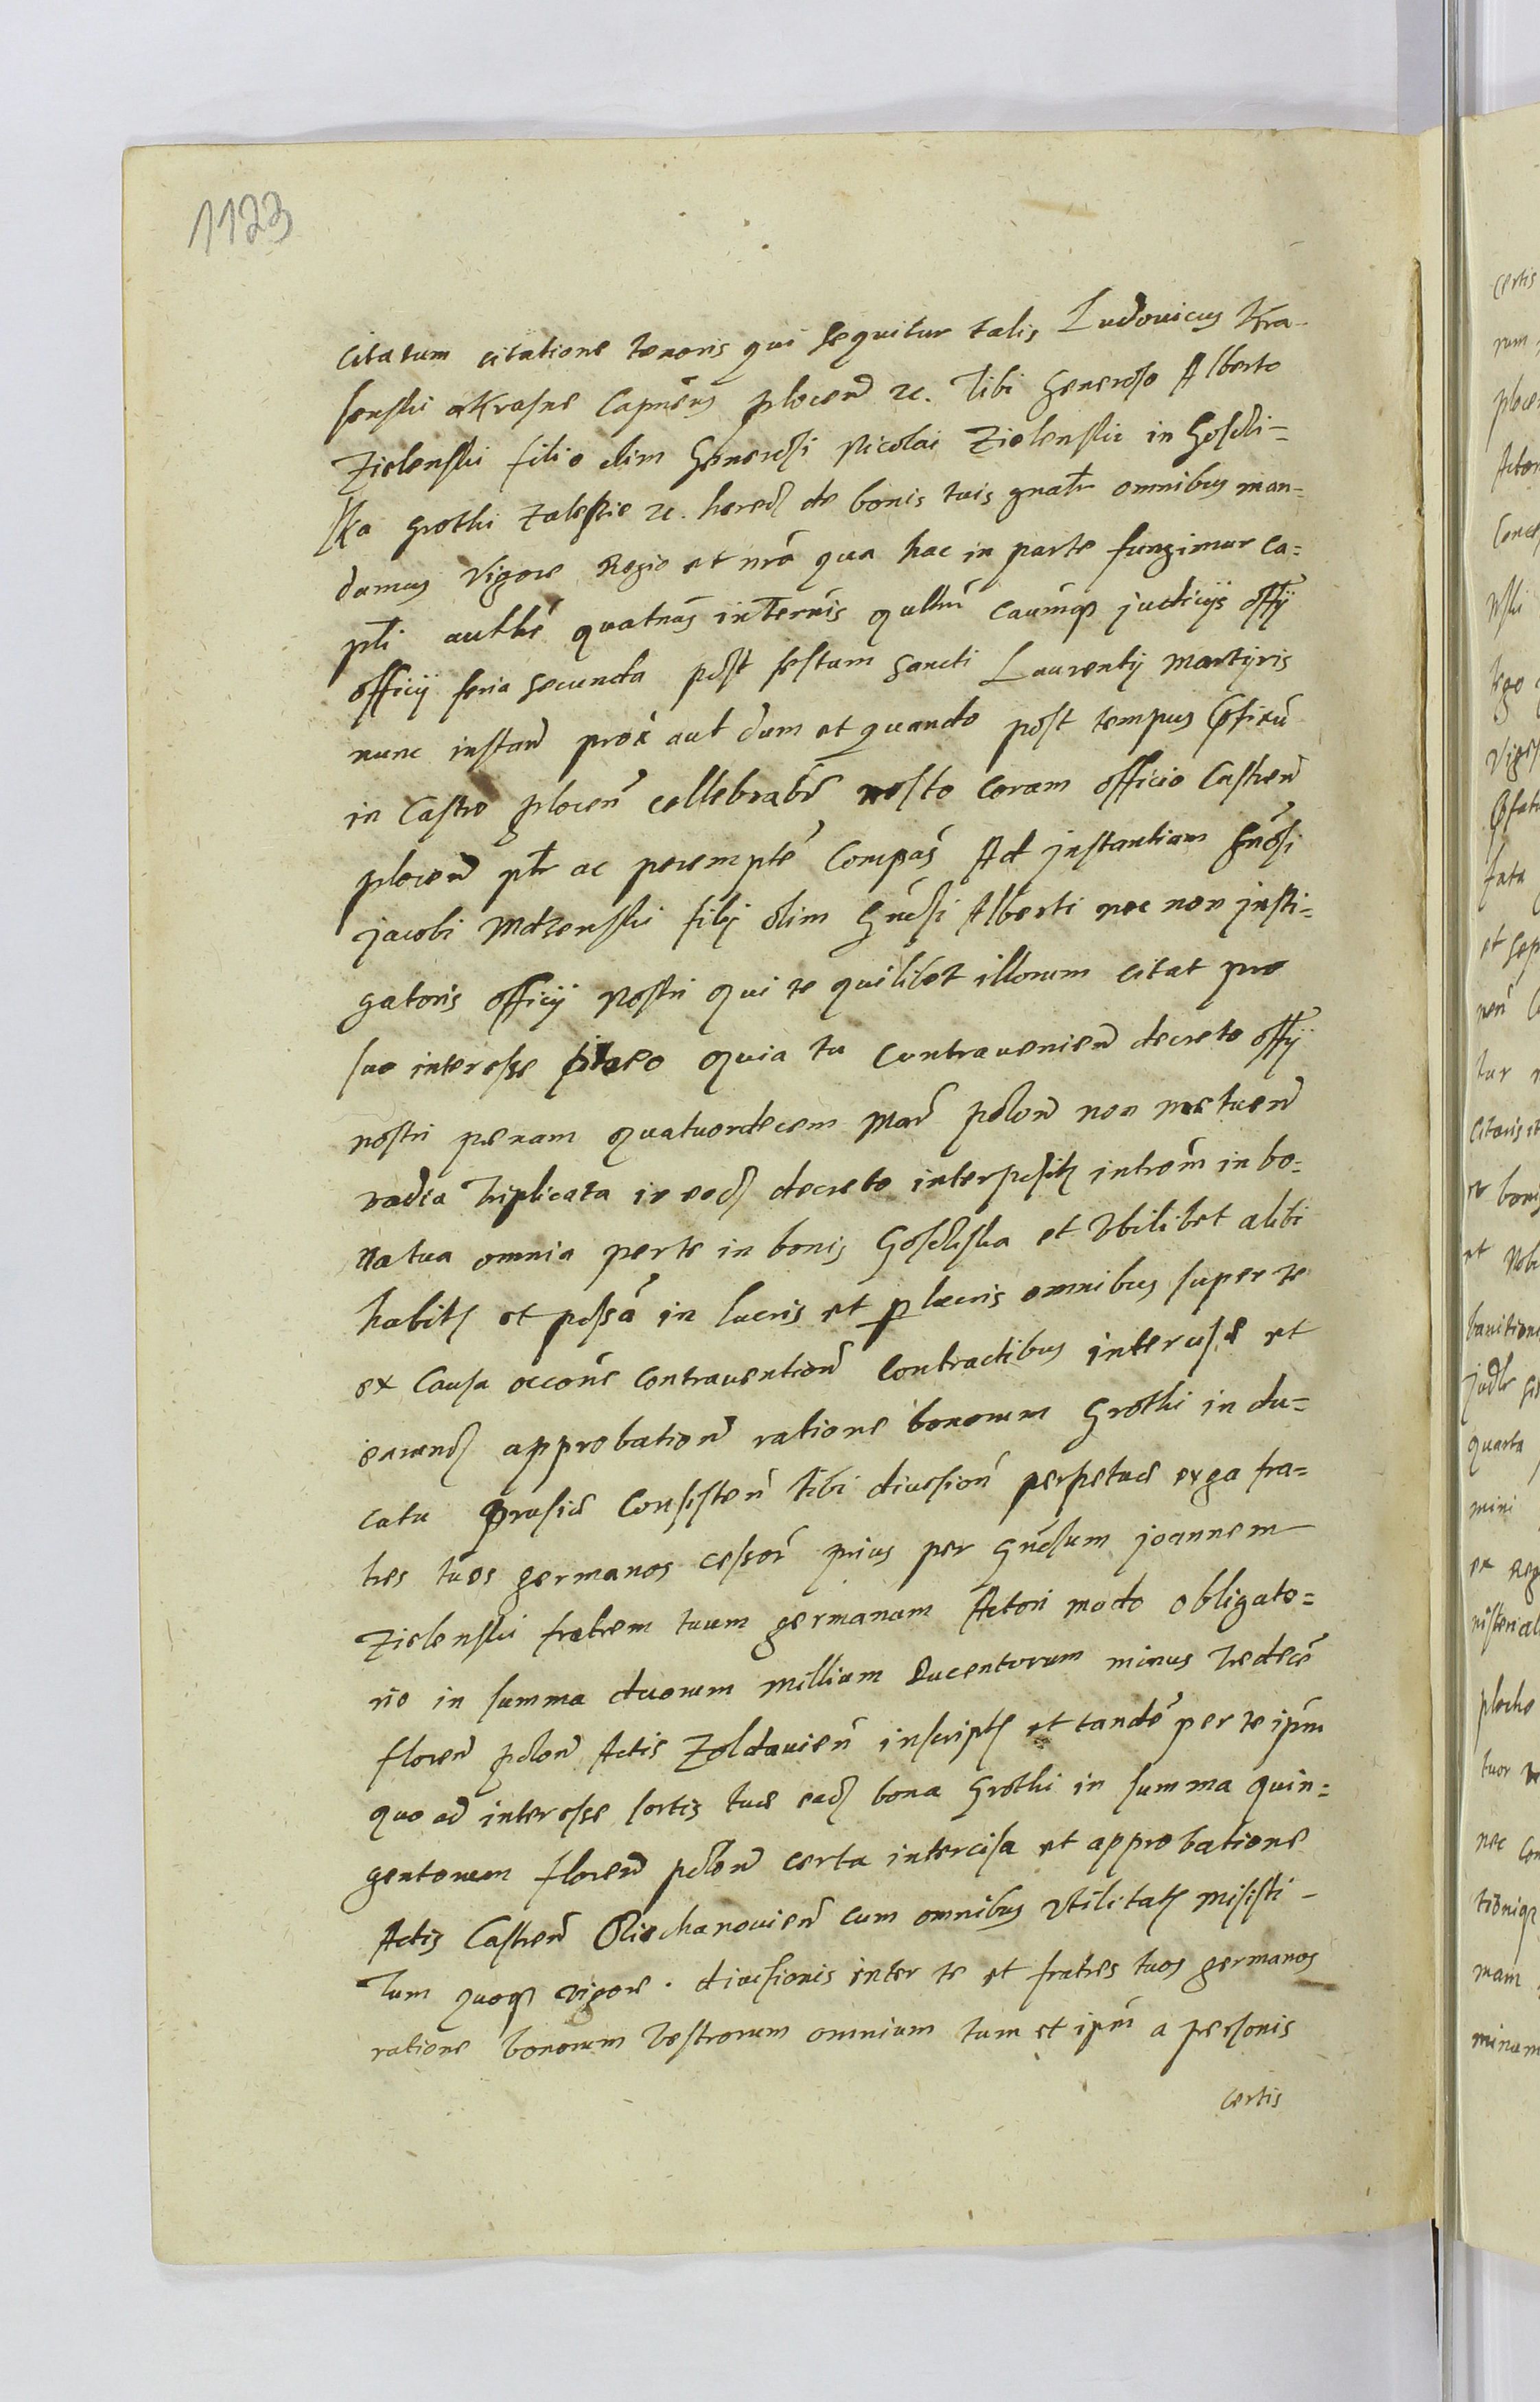 1123
citatum citatione tenoris qui sequitur talis Ludouicus Kra-
senski a Krasne Capnēus plocen̄ etc. Tibi Generoso Alberto
Zielenski filio olim Generosi Nicolai Zielenski in Gosdli=
ska Grothi Zaleskie etc. hered de bonis tuis gnalr omnibus man=
damus vigore Regio et nrā qua hac in parte fungimur ca=
ptli authē quatnus in Termīs qllrū caūmq judicijs offij
officij feria secunda post festum Sancti Laurentij Martyris
nunc instan̄ prox̄ aut dum et quando post tempus pfixū
in Castro plocen̄ cellebrabr̄ nosto coram officio Castren̄
plocen̄ plr ac peremptē Compas Ad jnstantiam Gnōsi
jacobi Mdzenski filij olim Gnōsi Alberti nec non jnsti=
gatoris officij Nostri qui te quilibet illorum citat pro
suo interesse ideo quia tu contravenien̄ decreto offij
nostri penam quatuordecem Mar̄ polon̄ non metuen̄
vadia Triplicata in eod decreto interposit introm̄ in bo=
na tua omnia per te in bonis Gosdliska et Vbilibet alibi
habit et possā in lucris et p lucris omnibus super te
ex Causa occōne contrauention̄ Contractibus intercisæ et
earund approbation̄ ratione bonorum Grothi in du=
catu Prusiæ Consisten̄ Tibi diuision̄ perpetuæ erga fra=
tres tuos germanos cessor̄ prius per Gnōsum joannem
Zielenski fratrem tuum germanum Actori modo obligato=
rio in summa duorum millium Ducentorum minus Tredecē
floren̄ polon̄ Actis Zoldauien̄ inscript et tandē per te ipm̄
quo ad interesse sortis tuæ ead bona Grothi in summa quin=
gentorum floren̄ polon̄ certa intercisa et approbatione
Actis Castren̄ Ciechanouien̄ cum omnibus vtilitat misisti -
Tum quoq vigore diuisionis inter te et fratres tuos germanos
ratione bonorum Vestrorum omnium tum et ipm̄ a personis
certis